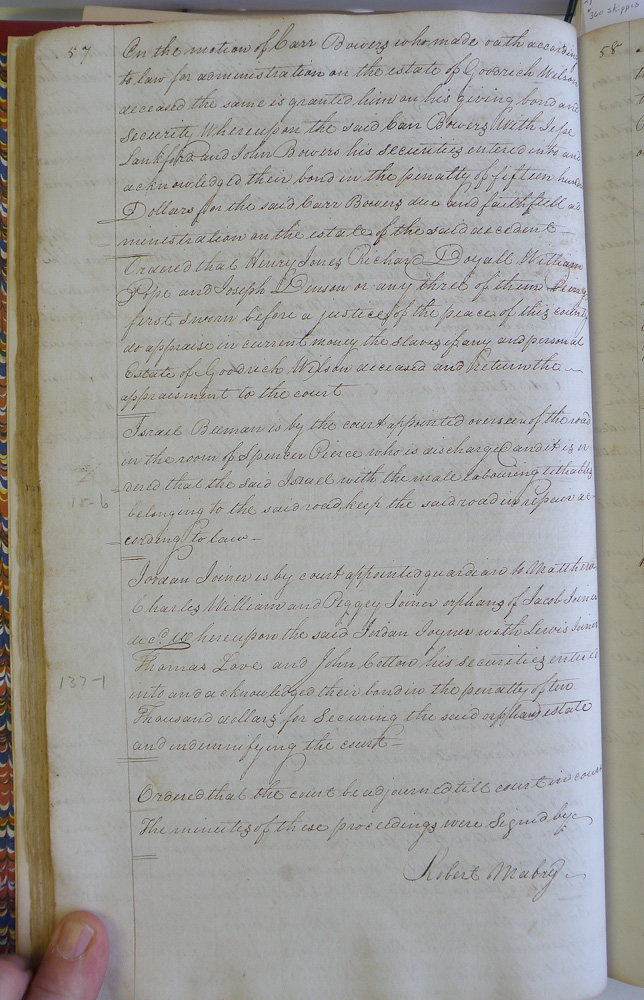 *360 skipped
57
58
On the motion of Carr Bowers who made oath according
to law for administration on the estate of Goodrich Wilson
deceased the same is granted him on his giving bond and
security Whereupon the said Carr Bowers With Jesse
Lankford and John Bowers his securities entered into and
acknowledged their bond in the penalty of fifteen hund
Dollars for the said Carr Bowers due and faithfull ad
ministration on the estate of the said decedent
Ordered that Henry Jones Richard Doyall William
Pope and Joseph Denson or any three of them being
first sworn before a justice of the peace of this county
do appraise in current money the slaves if any and personal
Estate of Goodrich Wilson deceased and Return the
appraisment to the court
Israel Beeman is by the court appointed overseer of the road
in the room of Spencer Pierce who is discharged and it is or
dered that the said Israel with the male labouring tithables
15-6
belonging to the said road keep the said road in repair ac
cording to law
Jordan Joiner is by court appointed guardian to Matthew
Charles William and Peggey Joiner orphans of Jacob Joiner
decd. Whereupon the said Jordan Joyner with Lewis Joiner
Thomas Love and John Cotton his securities entered
137-1
into and acknowledged their bond in the penalty of two
Thousand dollars for Securing the said orphans estate
and indemnifying the court
Ordered that the court be adjourned till court in course
The minutes of these proceedings were Signed by
Robert Mabry